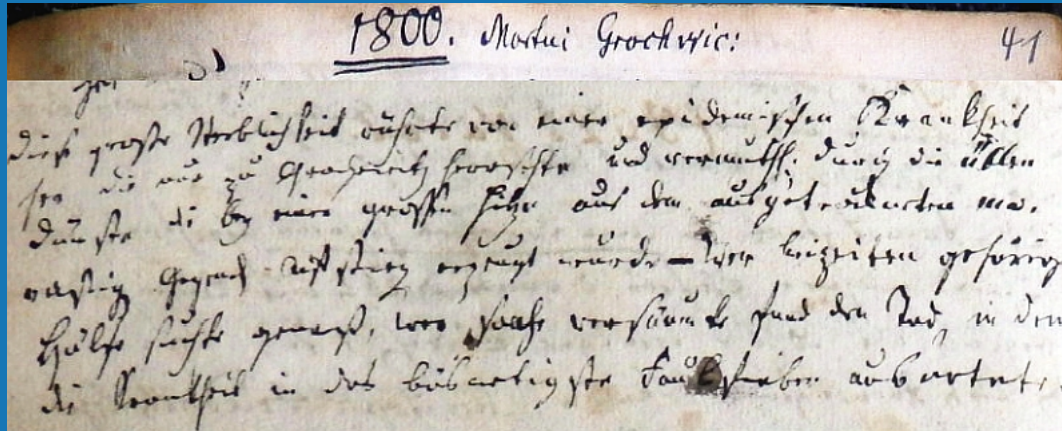 1800. Mortui Grochwic: 41
diese große Sterblichkeit rührte von einer epidemischen Krankheit
her die nur zu Grochwitz herrschte und vermuthl. durch die üblen
Dünste die bey einer großen Hitze aus dem ausgetrockneten mo-
rastig aufstieg erzeugt wurde — Wer beizeiten gehörige
Hülfe suchte genaß, wer solche versäumte fand den Tod, in dem
die Krankheit in das bösartigste Faulfieber ausartete.